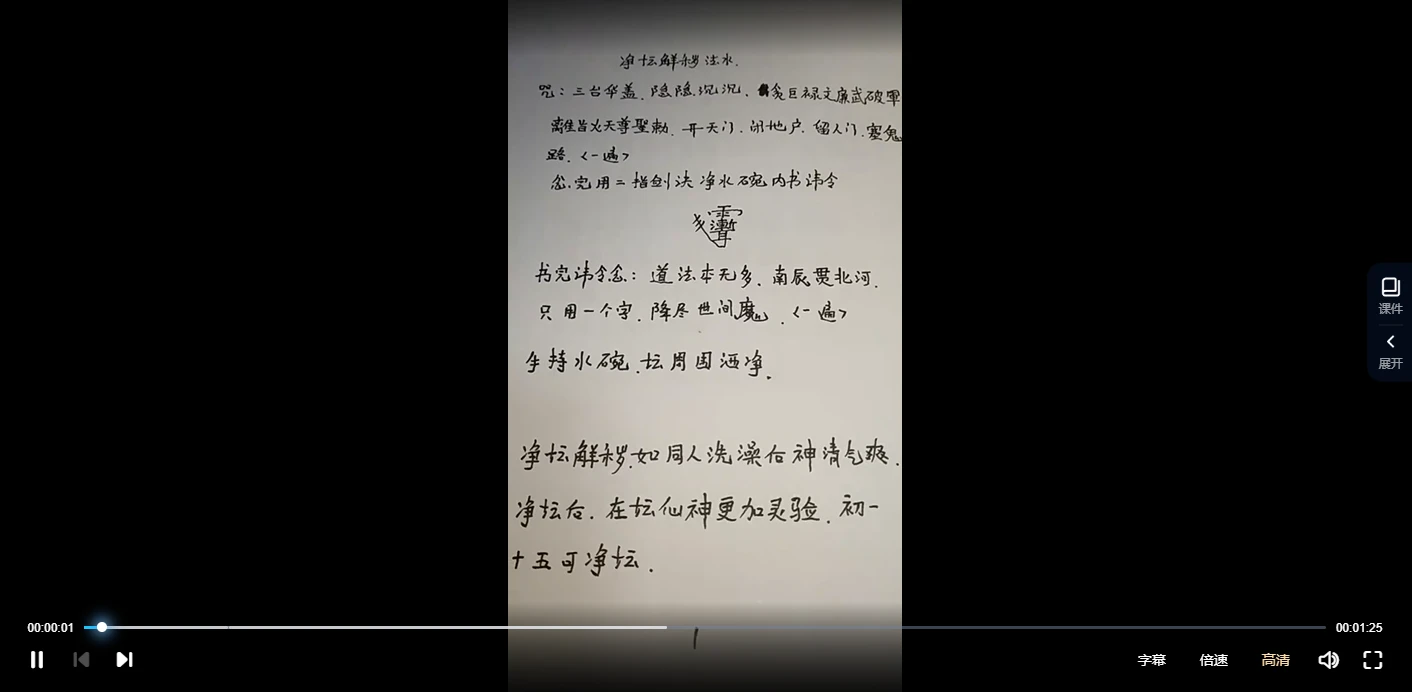 净坛解秽法水.
咒：三台华盖.隐隐沉沉.贪巨禄文廉武破軍
皆火天尊聖勅.开天门.闭地户.留人门.塞鬼
路.<一遍>
念.完用二指剑决净水碗内书讳令
书完讳令念：道法本无多.南辰贯北河.
只用一个字.降尽世间魔.<一遍>
手持水碗.坛周围洒净.
净坛解秽.如同人洗澡后神清气爽.
净坛后.在坛仙神更加灵验.初一
十五可净坛.
课件
展开
00:00:01
00:01:25
字幕
倍速
高清